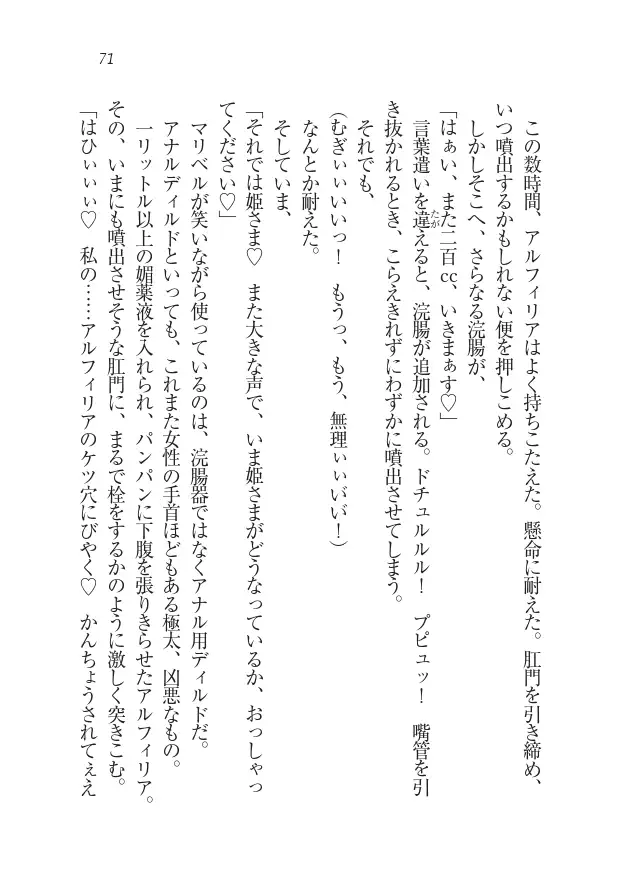 71
この数時間、アルフィリアはよく持ちこたえた。懸命に耐えた。肛門を引き締め、
いつ噴出するかもしれない便を押しこめる。
しかしそこへ、さらなる浣腸が、
「はぁい、また二百cc、いきまぁす♡」
言葉遣いを違えると、浣腸が追加される。ドチュルルル！　プピュッ！　嘴管を引
たが
き抜かれるとき、こらえきれずにわずかに噴出させてしまう。
それでも、
(むぎぃぃいいっ！　もうっ、もう、無理ぃぃいい゛！)
なんとか耐えた。
そしていま、
「それでは姫さま♡　また大きな声で、いま姫さまがどうなっているか、おっしゃっ
てください♡」
マリベルが笑いながら使っているのは、浣腸器ではなくアナル用ディルドだ。
アナルディルドといっても、これまた女性の手首ほどもある極太、凶悪なもの。
一リットル以上の媚薬液を入れられ、パンパンに下腹を張りきらせたアルフィリア。
その、いまにも噴出させそうな肛門に、まるで栓をするかのように激しく突きこむ。
「はひぃぃぃ♡　私の……アルフィリアのケツ穴にびやく♡　かんちょうされてぇえ